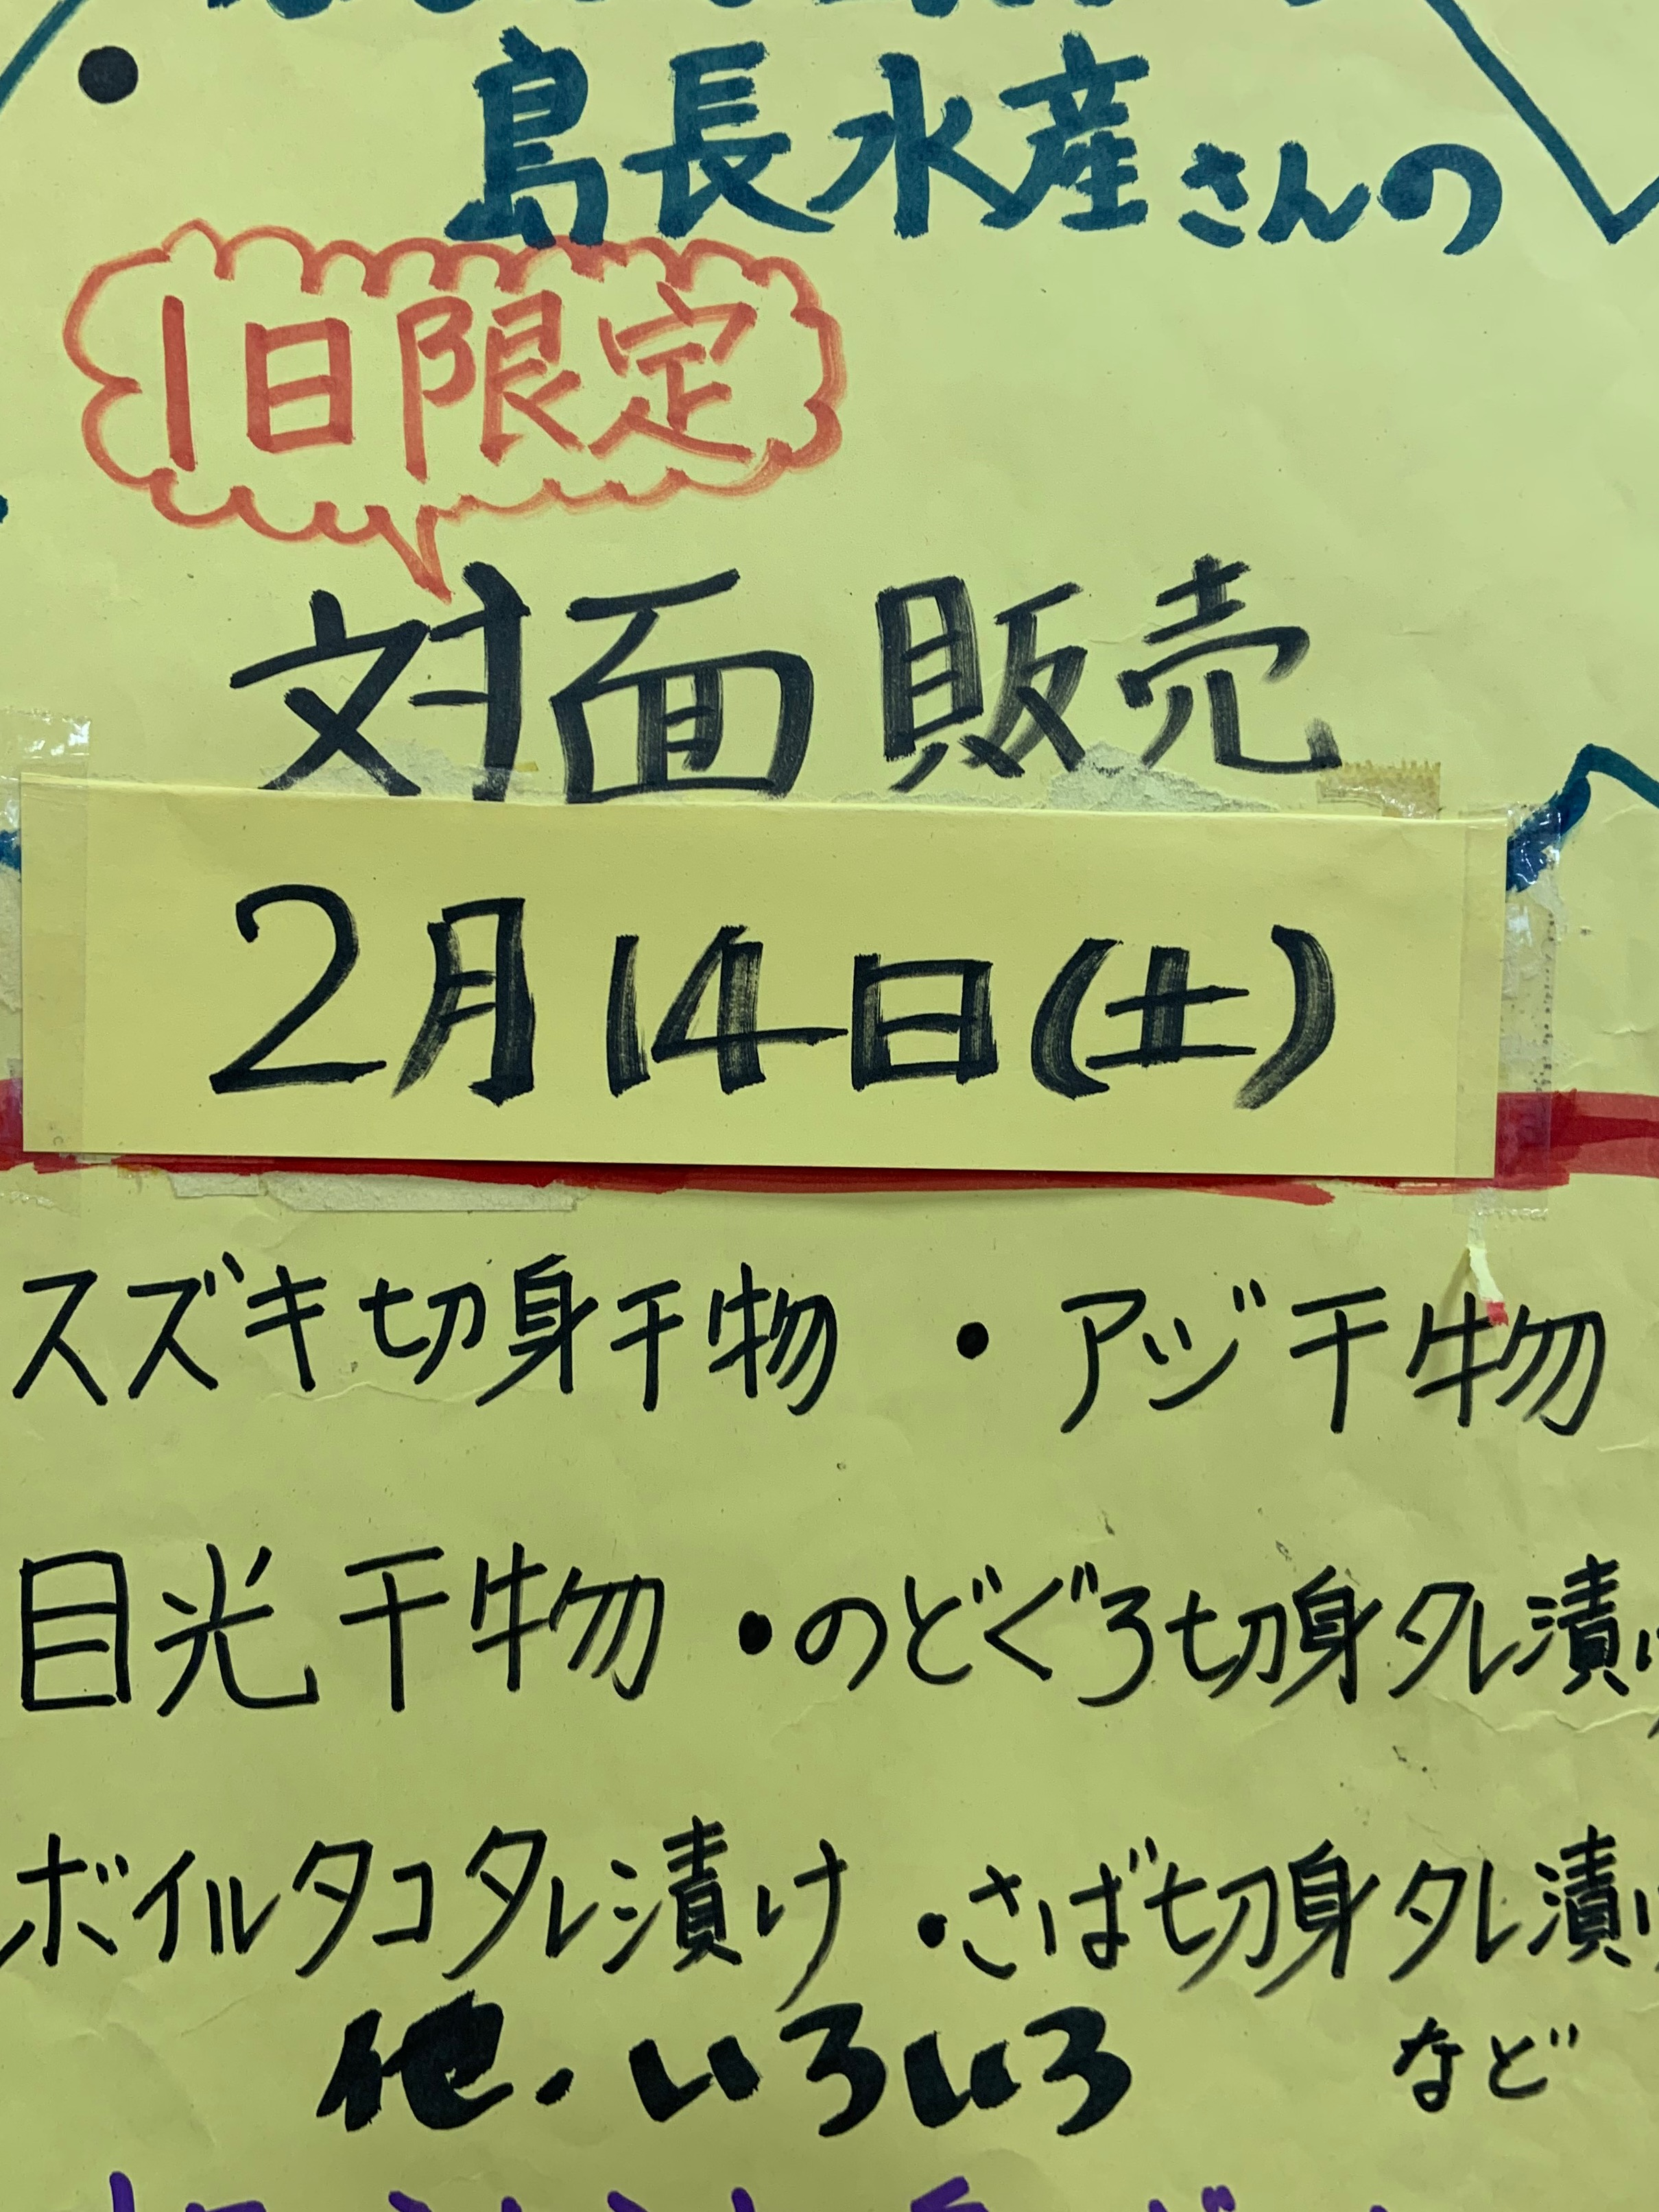 島長水産さんの
1日限定
対面販売
2月14日(土)
スズキ切身干物 ・アジ干物
目光干物 ・のどぐろ切身タレ漬け
ボイルタコタレ漬け ・さば切身タレ漬け
他.いろいろ など